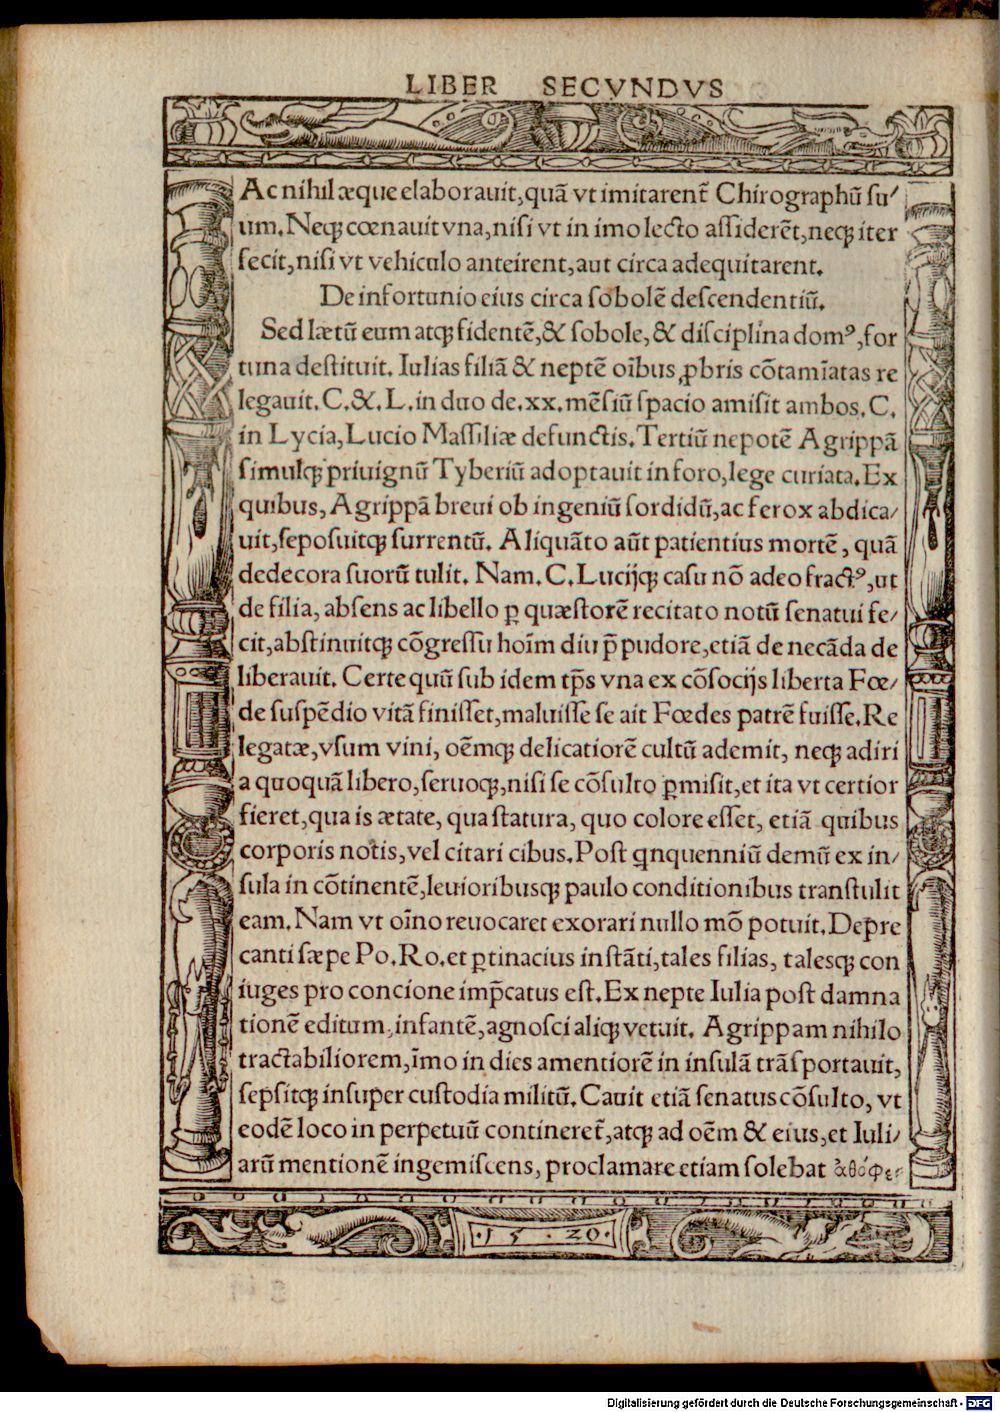 LIBER SECVNDVS
Ac nihil æque elaborauit, quã vt imitarent̃ Chirographũ su⸗
um. Neq; cœnauit vna, nisi vt in imo lecto assiderẽt, neq; iter
fecit, nisi vt vehiculo anteirent, aut circa adequitarent.
De infortunio eius circa sobolẽ descendentiũ.
Sed lætũ eum atq; fidentẽ, & sobole, & disciplina domꝰ, for
tuna destituit. Iulias filiã & neptẽ oĩbus ꝓbris cõtamĩatas re
legauit. C. &. L. in duo de. xx. mẽsiũ spacio amisit ambos. C.
in Lycia, Lucio Massiliæ defunctis. Tertiũ nepotẽ Agrippã
simulq; priuignũ Tyberiũ adoptauit in foro, lege curiata. Ex
quibus, Agrippã breui ob ingeniũ sordidũ, ac ferox abdica⸗
uit, seposuitq; surrentũ. Aliquãto aũt patientius mortẽ, quã
dedecora suorũ tulit. Nam. C. Lucijq; casu nõ adeo fractꝰ, ut
de filia, absens ac libello ꝑ quæstorẽ recitato notũ senatui fe⸗
cit, abstinuitq; cõgressu hoĩm diu p̃ pudore, etiã de necãda de
liberauit. Certe quũ sub idem tp̃s vna ex cõsocijs liberta Fœ⸗
de suspẽdio vitã finisset, maluisse se ait Fœdes patrẽ fuisse. Re
legatæ, vsum vini, oẽmq; delicatiorẽ cultũ ademit, neq; adiri
a quoquã libero, seruoq;, nisi se cõsulto ꝑmisit, et ita vt certior
fieret, qua is ætate, qua statura, quo colore esset, etiã quibus
corporis notis, vel citari cibus. Post ꝗnquenniũ demũ ex in⸗
sula in cõtinentẽ, leuioribusq; paulo conditionibus transtulit
eam. Nam vt oĩno reuocaret exorari nullo mõ potuit. Dep̃re
canti sæpe Po. Ro. et ꝑtinacius instãti, tales filias, talesq; con
iuges pro concione imp̃catus est. Ex nepte Iulia post damna
tionẽ editum, infantẽ, agnosci aliq; vetuit. Agrippam nihilo
tractabiliorem, ĩmo in dies amentiorẽ in insulã trãsportauit,
sepsitq; insuper custodia militũ. Cauit etiã senatus cõsulto, vt
eodẽ loco in perpetuũ contineret̃, atq; ad oẽm & eius, et Iuli⸗
arũ mentionẽ ingemiscens, proclamare etiam solebat ἀθόφε⸗
·15·20·
Digitalisierung gefördert durch die Deutsche Forschungsgemeinschaft - DFG